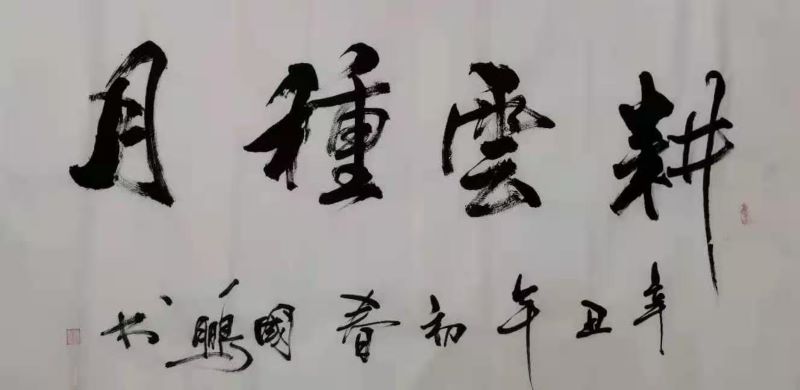 耕雲種月
辛丑年初春國鵬书